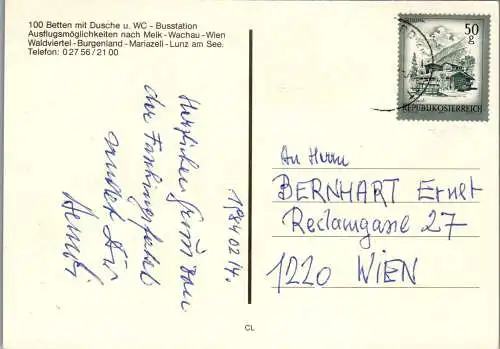 100 Betten mit Dusche u. WC - Busstation
Ausflugsmöglichkeiten nach Melk - Wachau - Wien
Waldviertel - Burgenland - Mariazell - Lunz am See.
Telefon: 0 27 56 / 21 00
50
g
REPUBLIK ÖSTERREICH
1984 02 14.
Herzlichen Gruß von
der Faschingsfahrt
sendet Dir
An Herrn
BERNHART Ernst
Reclamgasse 27
1220 WIEN
CL